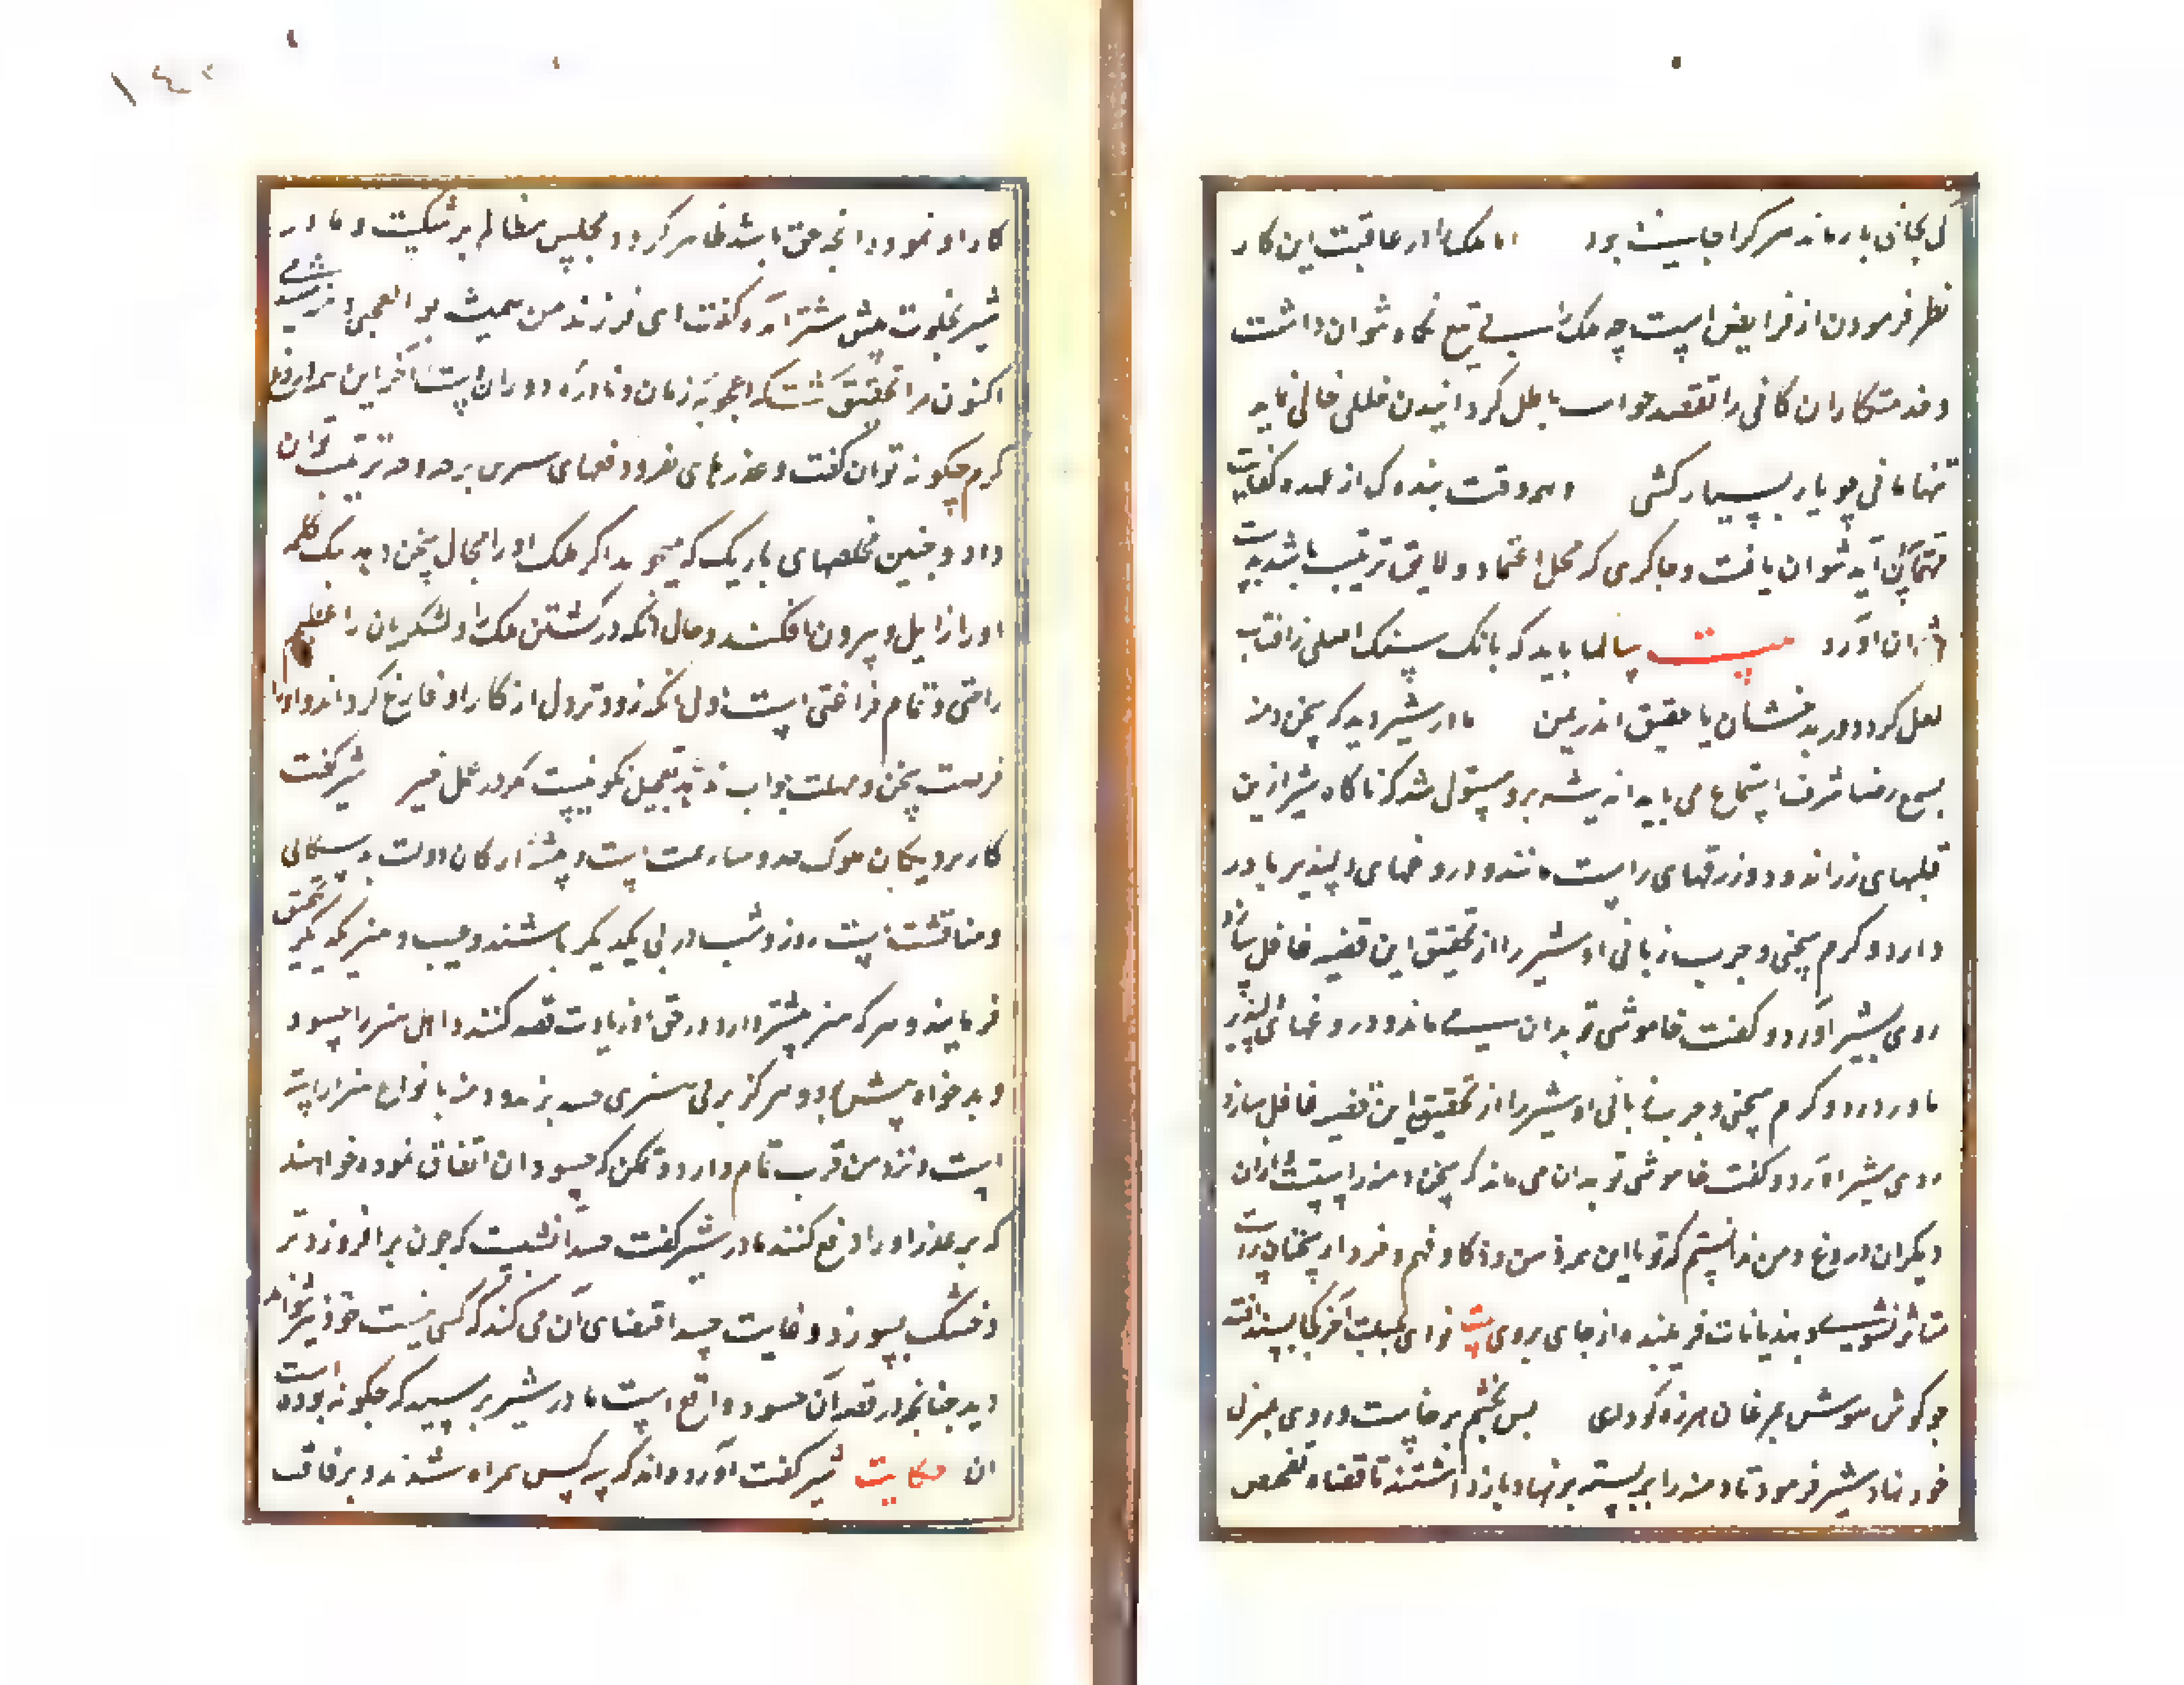 کل بجانی بارماند هر کرا جاسیت بود اما ملک را در عاقبت این کار
نظر فرمودن از فرایض است چه ملک را بی تیغ نگاه نتوان داشت
و خدمتکاران کافی را بقصد جواب باطل کردانیدن خللی خالی نماید
تنها مانی چو یار بسیار کشی و همه وقت بنده که از عهده کفایت
مهمات آید نتوان یافت و چاکری که محل اعتماد و لایق ترتیب باشد بدست
نتوان آورد بیت سالها باید که تا یک سنک اصلی ز افتاب
لعل کردد در بدخشان یا عقیق اندر یمن مادر شیر دید که سخن دمنه
بسمع رضا شرف استماع می یابد اندیشه برو مستولی شد که ناکاه شیر ازین
زراندود و زرقهای راست مانند و دروغهای دلپذیر باور
دارد و کرم سخنی و چرب زبانی او شیر را از تحقیق این قضیه غافل سازد
روی بشیر آورد و کفت خاموشی تو بدان می ماند و دروغهای دلپذیر
باور دارد و کرم سخنی و چرب زبانی او شیر را از تحقیق این قضیه غافل سازد
روی بشیر آورد و کفت خاموشی تو بدان می ماند که سخن دمنه راستست و ازان
دیکران دروغ و من ندانستم که تو با این همه ذهن و ذکا و فهم و خرد از سخنان راست
متاثر نشوی و بهذیانات فریبنده از جای بروی بیت نوای بلبلت آخر کجا پسند افتد
چو کوش هوش بمرغان هرزه کو داری پس بخشم برخاست و روی بمنزل
خود نهاد شیر فرمود تا دمنه را بربسته بزندان بازداشتند تا قضاة تفحص
۱۴۰
کار او نموده آنچه حق باشد ظاهر کردد مجلس مظالم برشکست و مادر
شیر بخلوت پیش شیر آمد و کفت ای فرزند من همیشه بوالعجبی دمنه شنیدمی
اکنون مرا تحقیق کشت که اعجوبه زمان و نادره دوران است آخر این همه دروغ
کرم چکونه توان کفت و عذرهای نغز و دفعهای سری بر چه وجه ترتیب توان
داد و چنین مخلصهای باریک که میجوید اکر ملک او را مجال سخن دهد بیک کلمه
او را ازین و بیرون افکند و حال آنکه در کشتن ملک را و لشکریان را عظیم
راحتی و تمام فراغتی است اولی آنکه زودتر دل از کار او فارغ کرداند و او را
فرصت سخن و مهلت جواب ندهد تعجیل نکو نیست مکر در عمل خیر شیر کفت
کار نزدیکان ملوک حسد و منازعت است و پیشه ارکان دولت بدسکالی
و مناقشت است روز و شب در پی یکدیکر باشند و عیب و هنر یکدیکر تحقیق
فرمایند و هر که هنر بیشتر دارد در حق او زیادت قصد کنند و اهل هنر را حسود
و بدخواه بیش بود و هرکز بر بی هنری حسد نبرند و دمنه با انواع هنر آراسته
است و نزد من قرب تمام دارد و ممکن که حسودان اتفاق نموده خواهند
که بر غدر او را دفع کنند مادر شیر کفت حسد آتشیست که چون برافروزد تر
و خشک بسوزد و غایت حسد اقتضای آن می کند که کسی نیست خود نیز نتواند
دید چنانچه در قصه آن حسود واقع است مادر شیر پرسید که چکونه بوده است
ان حکایت شیر کفت آورده اند که سه کس همراه شدند و برفاقت